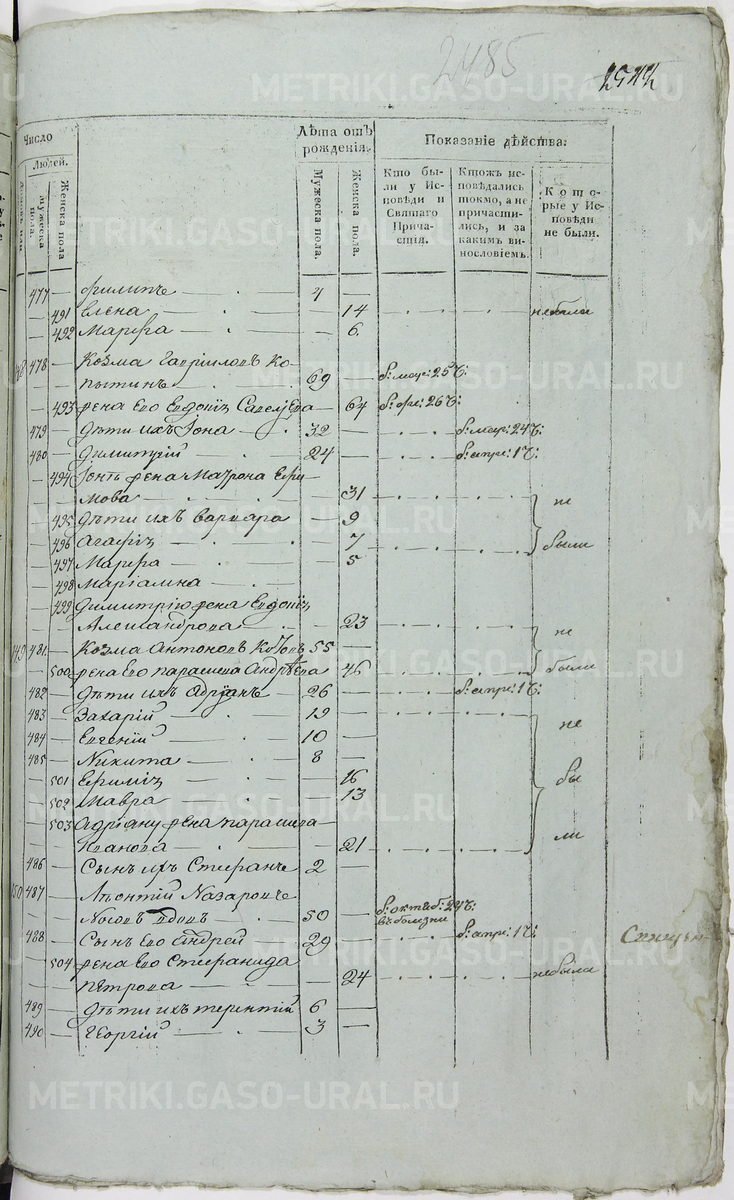 2485
Число
Людей.
Мужеска пола.
Женска пола
Лѣта отъ рожденія.
Мужеска пола.
Женска пола.
Показаніе дѣйства:
Кто бы-
ли у Ис-
повѣди и
Святаго
Прича-
щія.
Ктожъ ис-
повѣдались
токмо, а не
причасти-
лись, и за
какимъ ви-
нословіемъ.
Кото-
рые у Ис-
повѣди
не были.
477 Филипъ 4
491 Елена 14 не были
492 Марфа 6
148 478 Козма Гавриловъ Ко-
пытинъ 69 б: мар: 25 ч:
493 жена его Евдокія Савельева 64 б: фе: 26 ч:
479 дѣти ихъ Іона 32 б: мар: 24 ч:
480 Димитрій 24 б: апре: 1 ч:
494 Іоны жена Матрона Ефи-
мова 31
495 дѣти ихъ Варвара 9 не
496 Агафія 7 были
497 Марфа 5
498 Маріамна
499 Димитрію жена Евдокія
Александрова 23
149 481 Козма Антоновъ 55 не
500 жена его Парасковья Андрѣева 46 были
482 дѣти ихъ Адріанъ 26 б: апре: 1 ч:
483 Захарій 19
484 Евгеній 10 не
485 Никита 8
501 Ефимія 16 бы
502 Мавра 13
503 Адріану жена Парасковья
Иванова 21 ли
486 Сынъ ихъ Стефанъ 2
150 487 Леонтій Назаровъ
Носовъ вдовъ 50 б: октяб: 24 ч:
въ болезни
488 Сынъ его Андрей 29 б: апре: 1 ч:
504 жена его Стефанида
Петрова 24 не была
489 дѣти ихъ Терентій 6
490 Георгій 3
METRIKI.GASO-URAL.RU